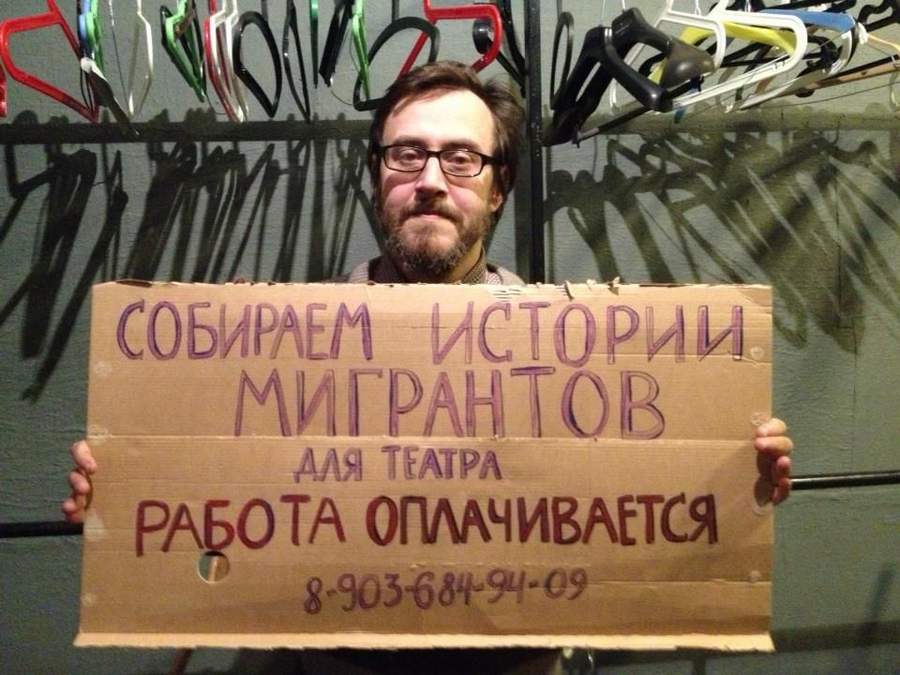 СОБИРАЕМ ИСТОРИИ
МИГРАНТОВ
ДЛЯ ТЕАТРА
РАБОТА ОПЛАЧИВАЕТСЯ
8-903-684-94-09